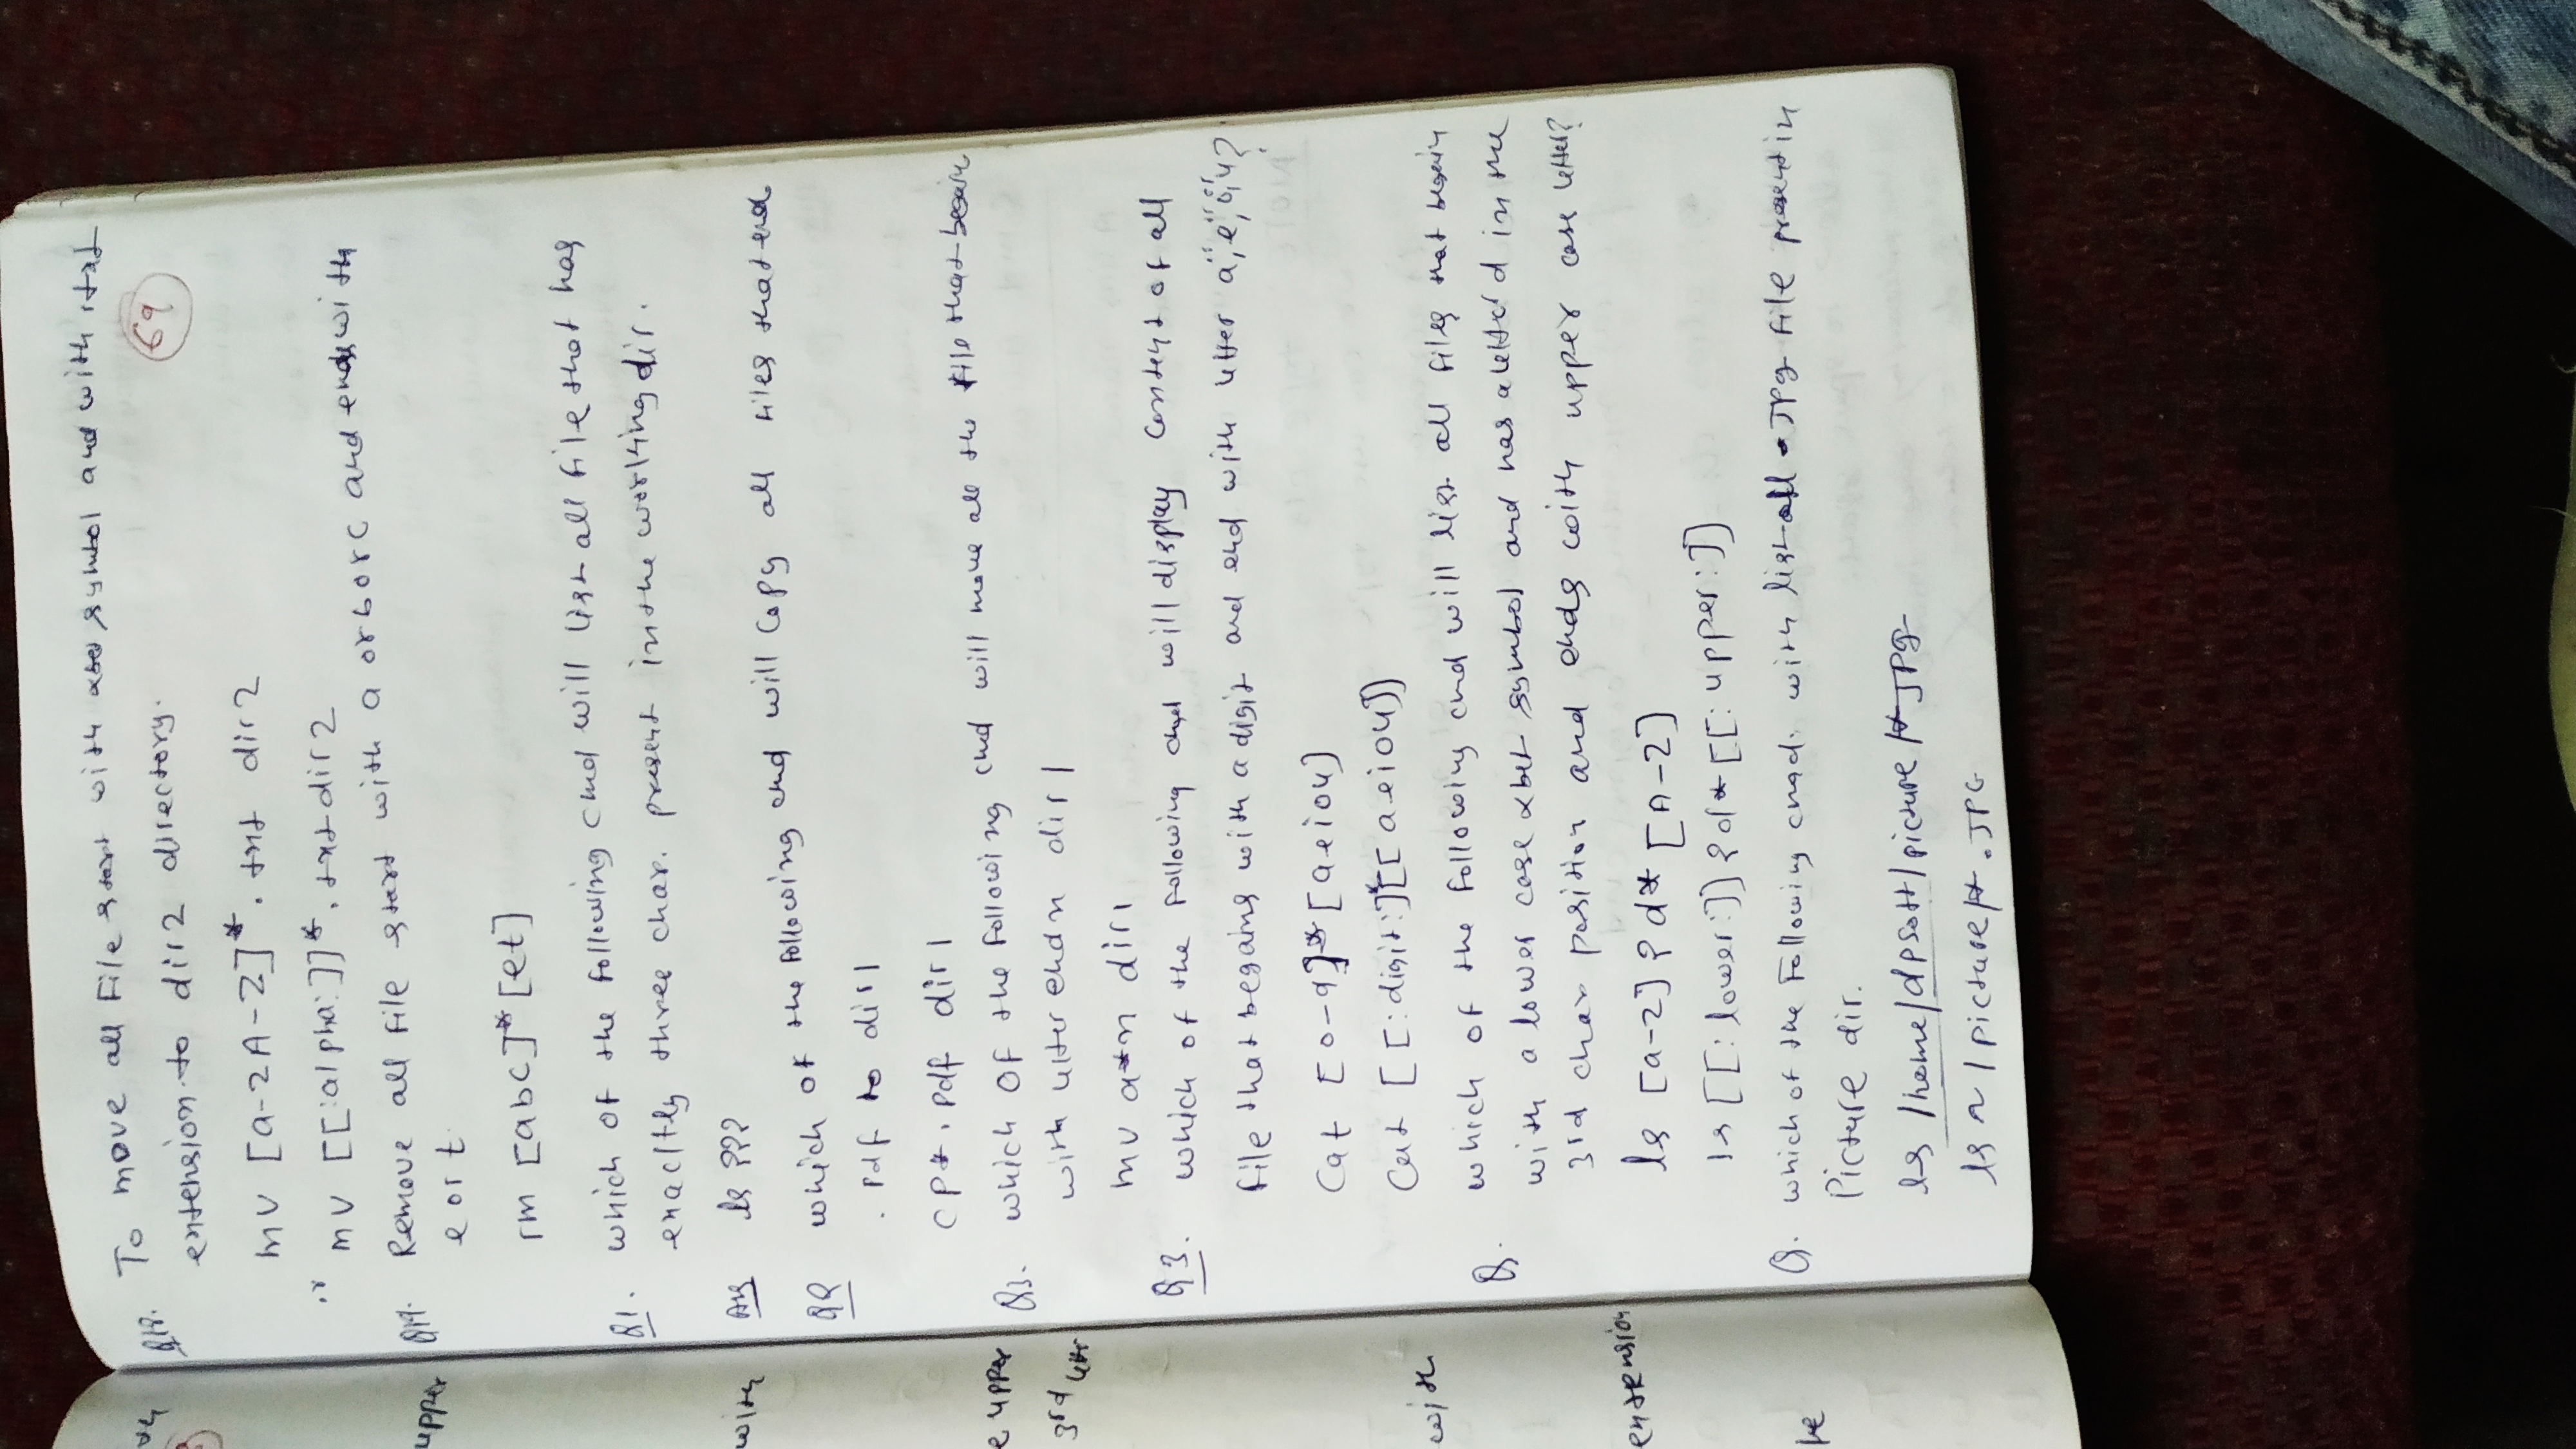 Q18. To move all File start with alp symbol and with .txt
extension to dir2 directory.
69
mv [a-zA-Z]*.txt dir2
mv [[:alpha:]]*.txt dir2
Q19. Remove all File start with a or b or c and ends with
e or t.
rm [abc]*[et]
Q1. which of the following cmd will list all file that has
enacltly three char. present in the working dir.
Ans ls ???
Q2 which of the following cmd will copy all files that end
.pdf to dir1
cp *.pdf dir1
Q3. which of the following cmd will move all the file that begin
with letter end n dir1
mv a*n dir1
Q3. which of the following cmd will display content of all
file that begains with a digit and end with letter a, e, i, o, u?
Cat [0-9]*[aeiou]
Cat [[:digit:]]*[aeiou]]
Q. which of the following cmd will list all files that begin
with a lower case abet symbol and has a letter d in the
3rd char position and ends with upper case letter?
ls [a-z]?d*[A-Z]
ls [[:lower:]]?d*[[:upper:]]
Q. which of the Following cmd. with list all .JPg file present in
Picture dir.
ls /home/dpsott/picture/*JPg
ls ~/picture/*.JPG
upper
with
e upper
3rd lettr
with
entension